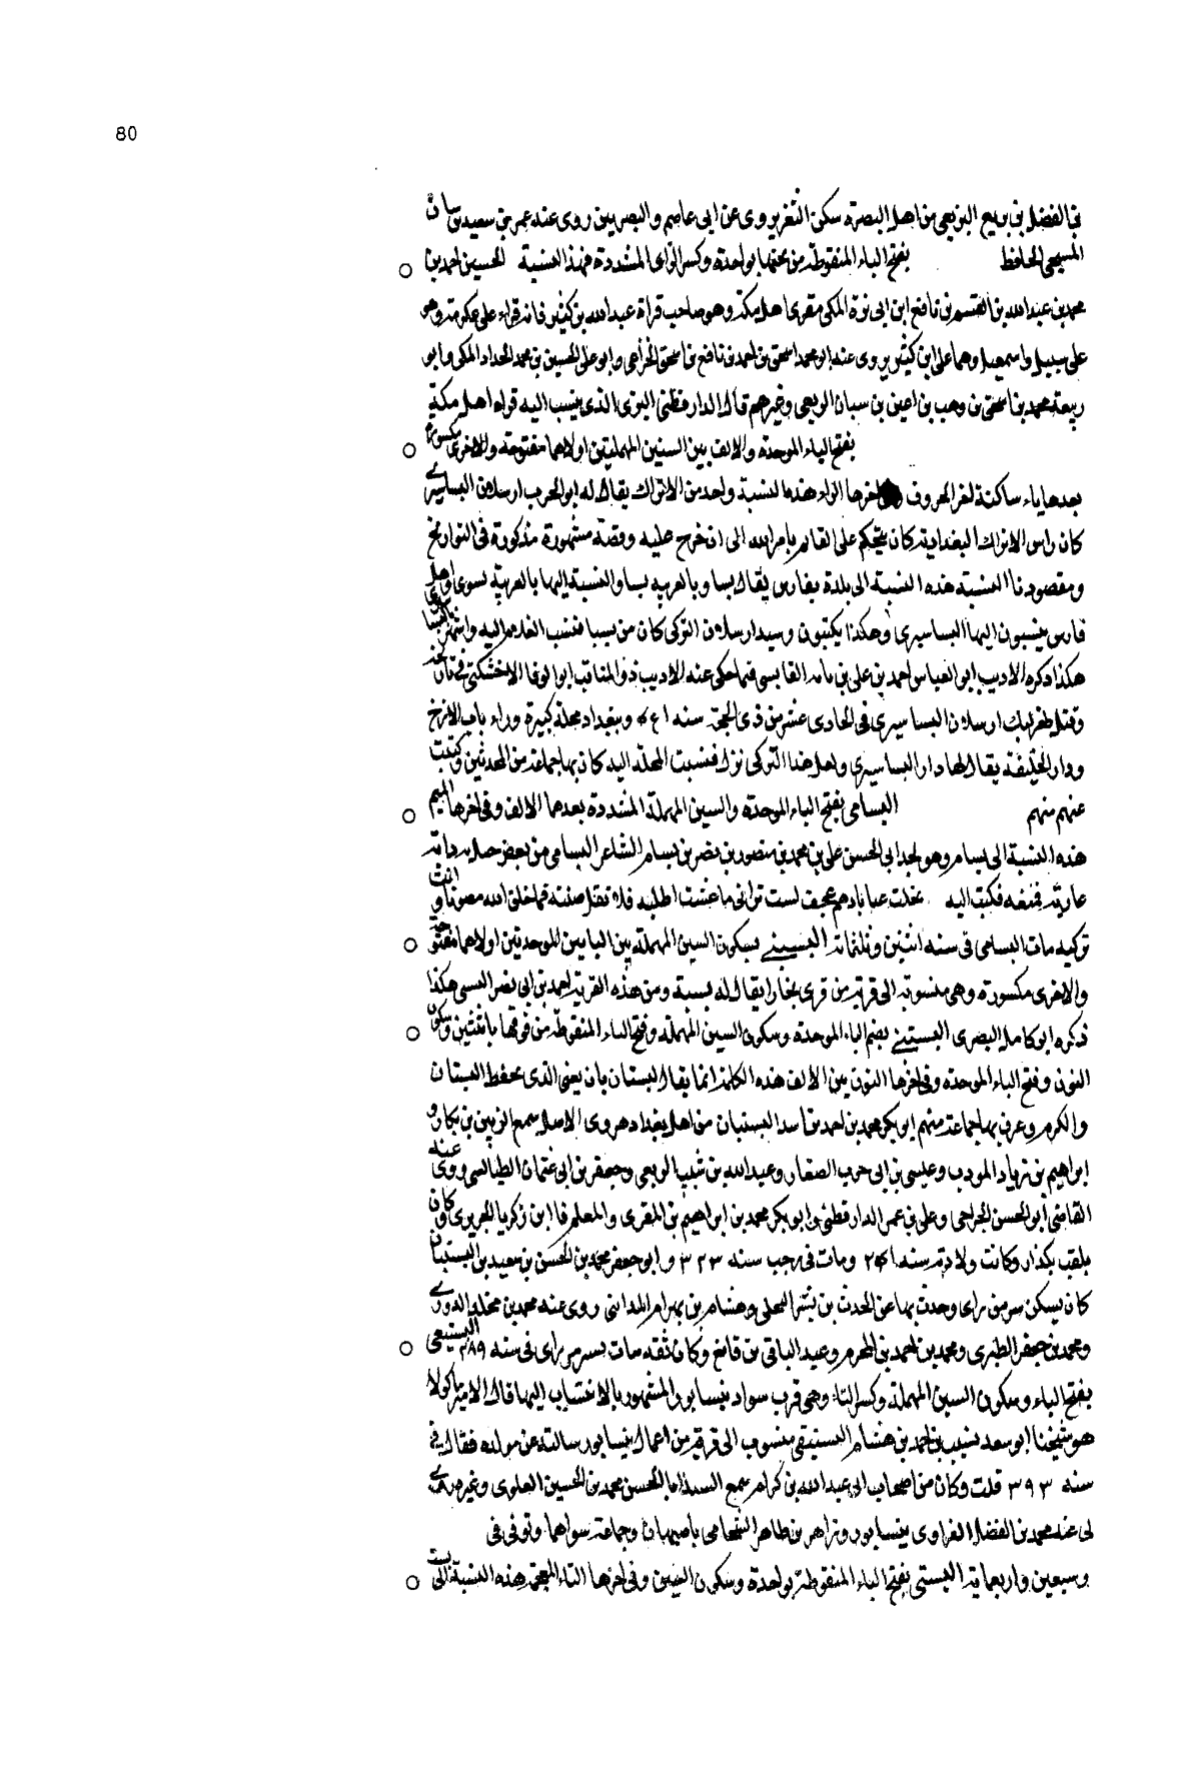 80
بن الفضل بن بريع البزيعي من اهل البصرة سكن الثغر يروى عن ابى عاصم والبصريين روى عنه عمر بن سعيد بن سنان
المسيحى الحافظ بفتح الباء المنقوطة من تحتها بواحدة وكسر الزاى المشددة فهذا النسبة لحسين احمد بن
محمد بن عبد الله بن القسم بن نافع ابن ابى بزة المكى مقرى اهل مكة وهو صاحب قراة عبد الله بن كثير فانه قراء على عكرمة وهو
على سبيل واسمعيل وهما على ابن كثير يروى عنه ابو محمد اسحق بن احمد بن نافع بن اسحق الخزاعى وابو على الحسين بن محمد الحداد المكى وابو
ربيعة محمد بن اسحق بن وهب بن اعين بن سنان الربعى وغيرهم قال الدارقطنى البزى الذى ينسب اليه قراه اهل مكة
بفتح الباء الموحدة والالف بين السنين المهملتين اولاهما مفتوحة والاخرى مكسورة
بعدها ياء ساكنة لغر المعروف اخرها الراء هذه النسبة واحد من الاتراك يقال له ابو الحرب ارسلان البساسيرى
كان راس الاتراك البغدادية كان يتحكم على القايم بامر الله الى ان خرج عليه وقصة مشهورة مذكورة فى التواريخ
ومقصودنا النسبة هذه النسبة الى بلدة بفارس يقال بسا وبالعربية بسا والنسبة اليها بالعربية بسوى واهل
فارس ينسبون اليها البساسيرى وهكذا يكتبون وسيد ارسلان التركى كان من بسا فنسب الغلام اليه واشتهر
هكذا ذكره الاديب ابو العباس احمد بن على بن بابه القابسى فيما حكى عنه الاديب ذو المناقب ابو الوفا الاخسيكتى
وقتل طغرلبك ارسلان البساسيرى فى الحادى عشر من ذى الحجة سنه وببغداد محلة كبيرة وراء باب الازج
ودار الخليفة يقال لها دار البساسيرى ولعل هذا التركى نزل فنسبت المحلة اليه كان بها جماعة من المحدثين وكتبت
عنهم منهم البسامى بفتح الباء الموحدة والسين المهملة المشددة بعدها الالف وفى اخرها الميم
هذه النسبة الى بسام وهو لجد ابى الحسن على بن محمد بن منصور بن نصر بن بسام الشاعر البسامى من بعض
عارية فمنعه فكتب اليه بخلت عنا بادهم عجف لست ترانى ما عشت اطلبه فلا تقل صنته فما خلق الله مصونا وانت
تركبه مات البسامى فى سنه اثنين وثلثماية البسبى بسكون السين المهملة بين البايين الموحدتين اولاهما مفتوحة
والاخرى مكسورة وهى منسوبة الى قرية من قرى بخارا يقال له بسبة ومن هذه القرية احمد بن ابى نصر البسبى هكذا
ذكره ابو كامل البصرى البستنبى بضم الباء الموحدة وسكون السين المهملة وفتح التاء المنقوطة من فوقها باثنتين وسكون
النون وفتح الباء الموحدة وفى اخرها النون بين الالف هذه الكلمة انما يقال لبستان بان يعنى الذى يحفظ البستان
والكرم وعرف بها جماعة منهم ابو بكر محمد بن احمد بن اسد البستنبان من اهل بغداد هروى الاصل سمع الزبير بن بكار و
ابراهيم بن زياد المودب وعيسى بن ابى حرب الصفار وعبد الله بن شبيب الربعى وجعفر بن ابى عثمان الطيالسى روى عنه
القاضى ابو الحسن الجراحى وعلى بن عمر الدارقطنى وابو بكر محمد بن ابراهيم بن المقرى والمعلم فا ابن زكريا الجريرى كان
يلقب بكذار وكانت ولادته سنه ٢٤١ ومات فى رجب سنه ٣٢٣ وابو جعفر محمد بن الحسن بن سعيد بن البستنبان
كان يسكن سر من راى وحدث بها عن الحدث بن بشر البجلى وهشام بن بهرام المداينى روى عنه محمد بن مخلد الدورى
ومحمد بن جعفر الطبرى ومحمد بن احمد بن المحرم وعبد الباقى بن قانع وكان ثقه مات بسر من راى فى سنه ٢٨٩ البستيغى
بفتح الباء وسكون السين المهملة وكسر التاء وهى قرب سواد نيسابور المشهور بالانتساب اليها قال الامير ماكولا
هو شيخنا ابو سعد شبيب بن احمد بن هشام البستيغى منسوب الى قرية من اعمال نيسابور سالته عن مولده فقال فى
سنه ٣٩٣ قلت وكان من اصحاب ابى عبد الله بن كرام سمع السيد ابا الحسن محمد بن الحسين العلوى وغيره روى
لى عنه محمد بن الفضل الفراوى بنيسابور وزاهر بن طاهر الشحامى باصبهان وجماعة سواهما وتوفى فى
وسبعين واربعماية البستى بفتح الباء المنقوطة بواحدة وسكون السين وفى اخرها التاء المعجمة هذه النسبة الى بست